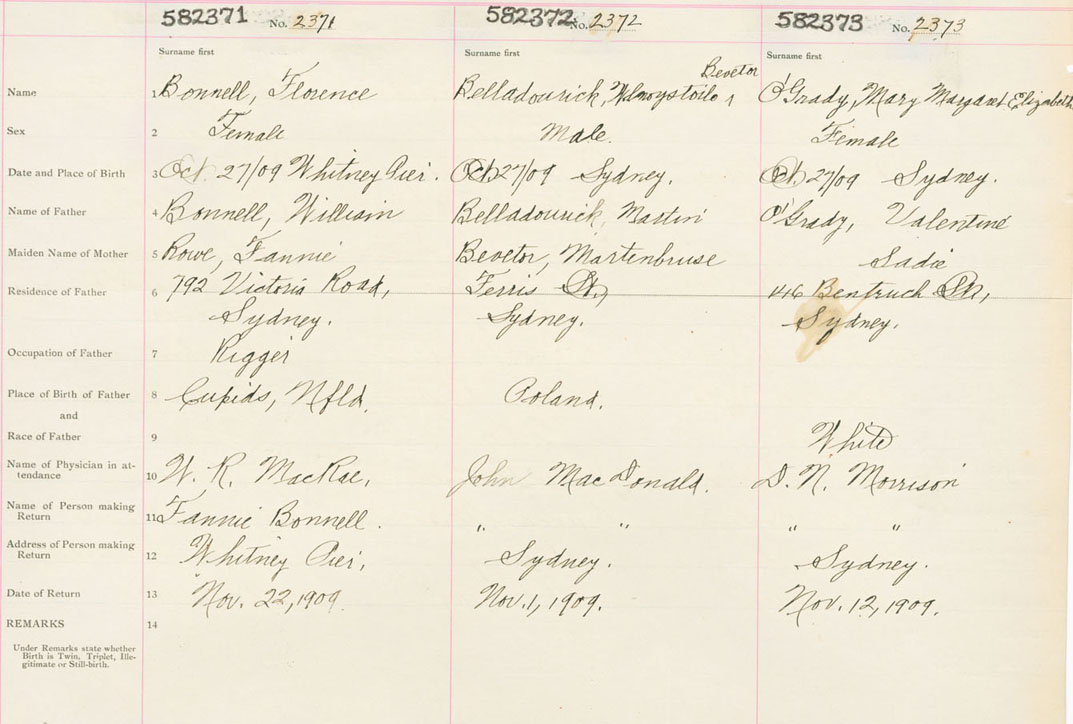 582371 No. 2371 582372 No. 2372 582373 No. 2373
Surname first Surname first Surname first
Bevetor
Name 1 Bonnell, Florence Belladourick, O'Grady, Mary Margaret Elizabeth
Sex 2 Female Male. Female
Date and Place of Birth 3 Oct. 27/09 Whitney Pier. Oct. 27/09 Sydney. Oct. 27/09 Sydney.
Name of Father 4 Bonnell, William Belladourick, Martin O'Grady, Valentine
Maiden Name of Mother 5 Rowe, Fannie Bevetor, Martenbruse Sadie
Residence of Father 6 792 Victoria Road, Ferris St., 446 Bentruch St.,
Sydney. Sydney. Sydney.
Occupation of Father 7 Rigger
Place of Birth of Father 8 Cupids, Nfld. Poland.
and
Race of Father 9 White
Name of Physician in at-
tendance 10 W. R. MacRae, John MacDonald. D. N. Morrison
Name of Person making
Return 11 Fannie Bonnell. " " " "
Address of Person making
Return 12 Whitney Pier, Sydney. Sydney.
Date of Return 13 Nov. 22, 1909 Nov. 1, 1909. Nov. 12, 1909.
REMARKS 14
Under Remarks state whether
Birth is Twin, Triplet, Ille-
gitimate or Still-birth.